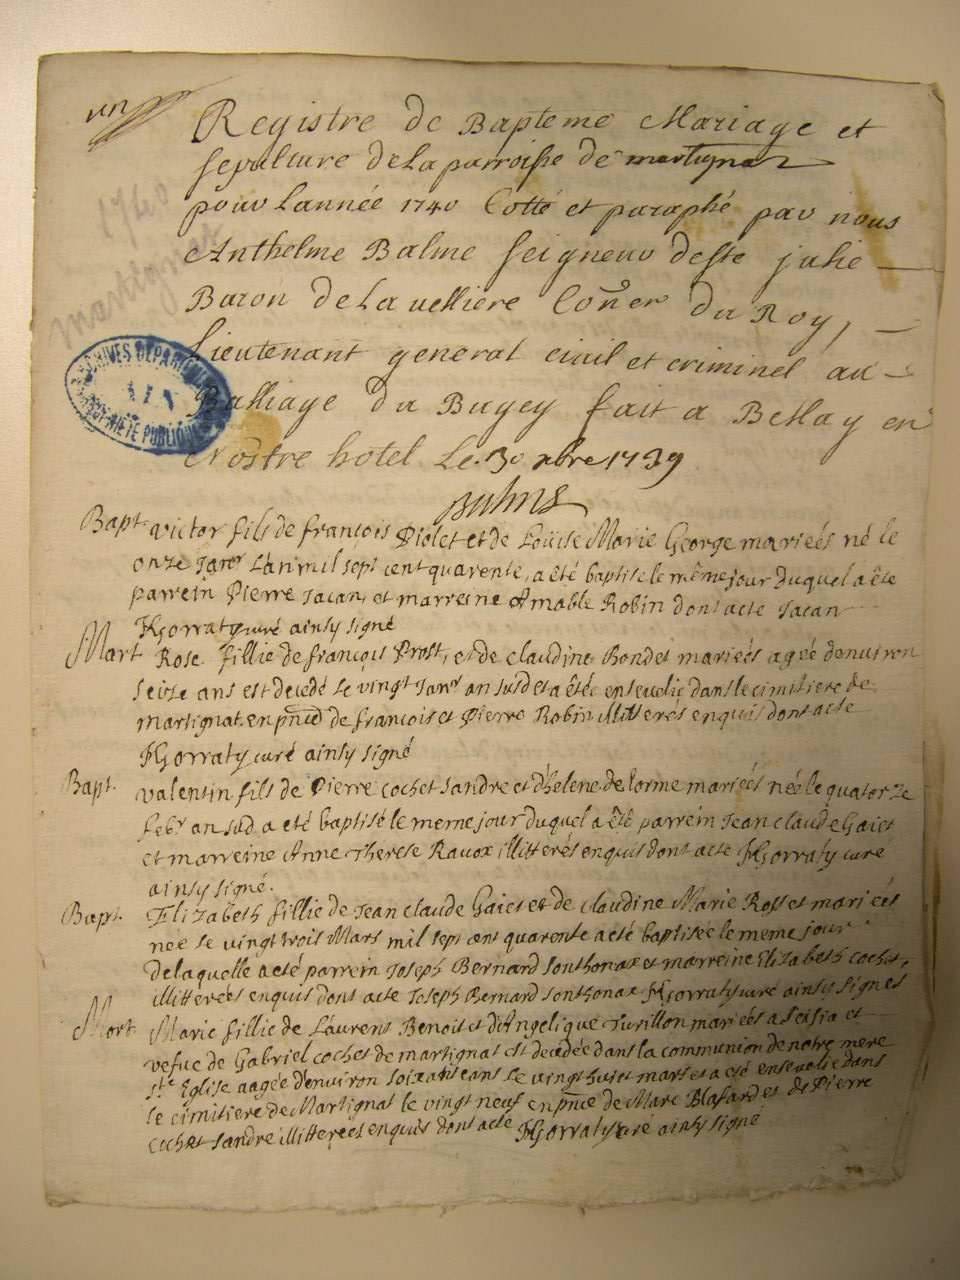 un
Registre de Bapteme Mariage et
sepulture de La parroisse de martignat
pour Lannée 1740 Cotté et paraphé par nous
Anthelme Balme seigneur deste julie
Baron de La velliere Coner du Roy,
Lieutenant general civil et criminel au
Balliage du Bugey fait a Bellay en
Nostre hotel Le 30 xbre 1739
1740
martignat
ARCHIVES DEPARTEMENT
AIN
PROPRIETE PUBLIQUE
Bapt. victor fils de françois Piolet et de Loüise Marie George mariéés né le
onze Janr Lan mil sept cent quarente, a été baptisé le même jour duquel a ête
parrein Pierre Jacan, et marreine Amable Robin dont acte Jacan
JGorraty curé ainsy signé
Mort Rose fillie de françois Prost, et de claudine Bondet mariéés agéé denviron
seize ans est decedé le vingt Janr an susd et a êtéé ensevelie dans le cimitiere de
martignat en pnce de françois et Pierre Robin illitterés enquis dont acte
JGorraty curé ainsy signé
Bapt. valentin fils de Pierre cochet sandre et d'helene de lorme mariéés néé le quatorze
febr an sud. a eté baptisé le meme jour duquel a êtê parrein Jean claude Gaiet
et marreine Anne Therese Ravox illitterés enquis dont acte JGorraty curé
ainsy signé.
Bapt. Elizabeth fillie de Jean claude Gaiet et de claudine Marie Rosset mariéés
néé le vingt trois Mars mil sept cent quarente a eté baptiséé le meme jour
de laquelle a eté parrein Joseph Bernard sonthonax et marreine Elizabeth cochet,
illitteréés enquis dont acte Joseph Bernard sonthonax JGorraty curé ainsy signés
Mort Marie fillie de Laurens Benoit et d'Angelique Turillon mariéés a seisia et
vefue de Gabriel cochet de martignat est decedée dans la communion de notre mere
Ste Eglise aagée d'environ soixante ans le vingt huit mars et a eté ensevelie dans
le cimitiere de Martignat le vingt neuf en pnce de Marc Blasard et de Pierre
cochet sandre illitterées enquis dont acte JGorraty curé ainsy signé